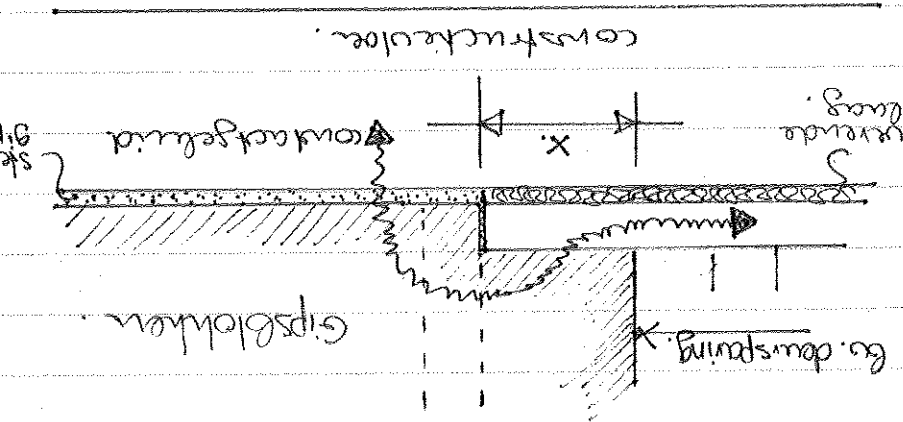 bv. deursparing.
Gipsblokken.
verende
laag.
X.
contactgeluid
constructievloer.